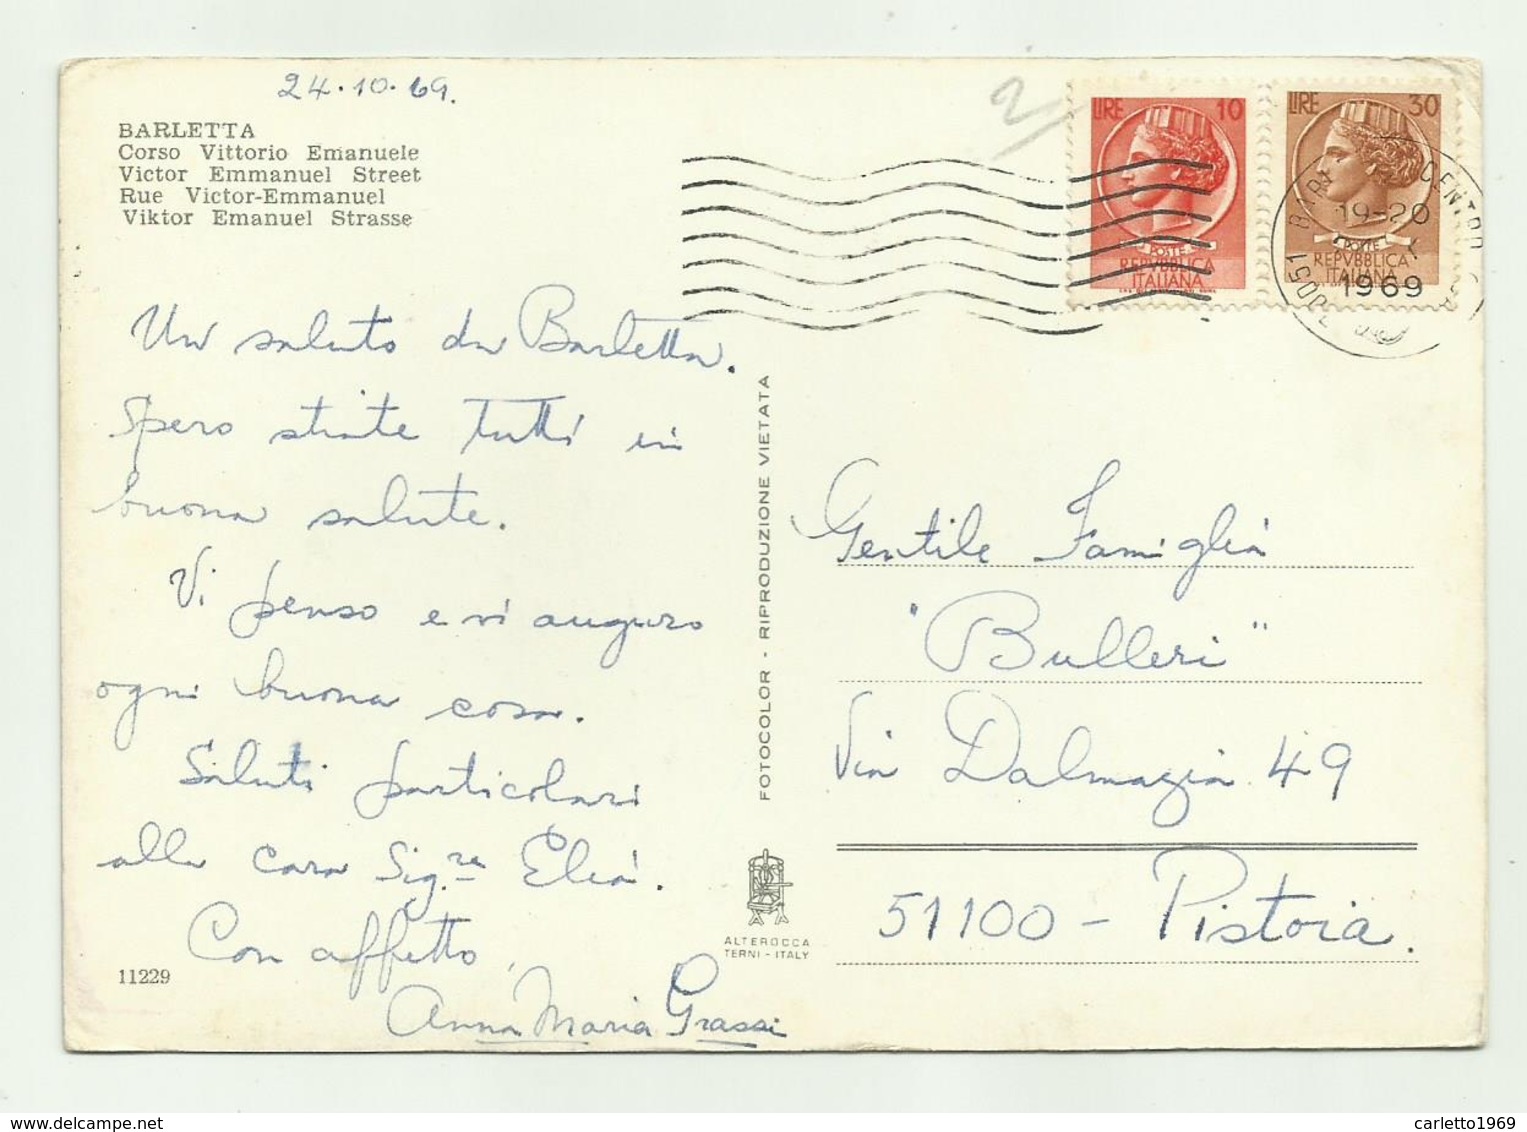 24.10.69.
BARLETTA
Corso Vittorio Emanuele
Victor Emmanuel Street
Rue Victor-Emmanuel
Viktor Emanuel Strasse
2
LIRE 10
POSTE
REPVBBLICA
ITALIANA
LIRE 30
POSTE
REPVBBLICA
ITALIANA
CENTRO
19-20
1969
Un saluto da Barletta.
Spero stiate tutti in
buona salute.
Vi penso e vi auguro
ogni buona cosa.
Saluti particolari
alla cara Sig.ra Elia.
Con affetto,
Anna Maria Grassi
11229
FOTOCOLOR - RIPRODUZIONE VIETATA
ALTEROCCA
TERNI - ITALY
Gentile Famiglia
"Bulleri"
Via Dalmazia 49
51100 - Pistoia.
delcampe.net
carletto1969